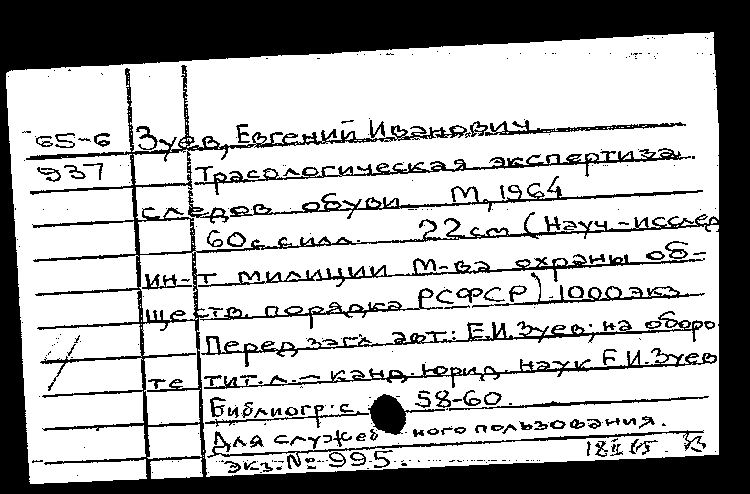 65-6 Зуев, Евгений Иванович.
937 Трасологическая экспертиза
следов обуви. М., 1964
60 с. с илл. 22 cm (Науч.-исслед
ин-т милиции М-ва охраны об-
ществ. порядка РСФСР). 1000 экз.
Перед загл. авт.: Е.И. Зуев; на оборо
те тит. л. – канд. юрид. наук Е.И. Зуев
Библиогр.: с. 58-60.
Для служебного пользования.
экз. № 995.